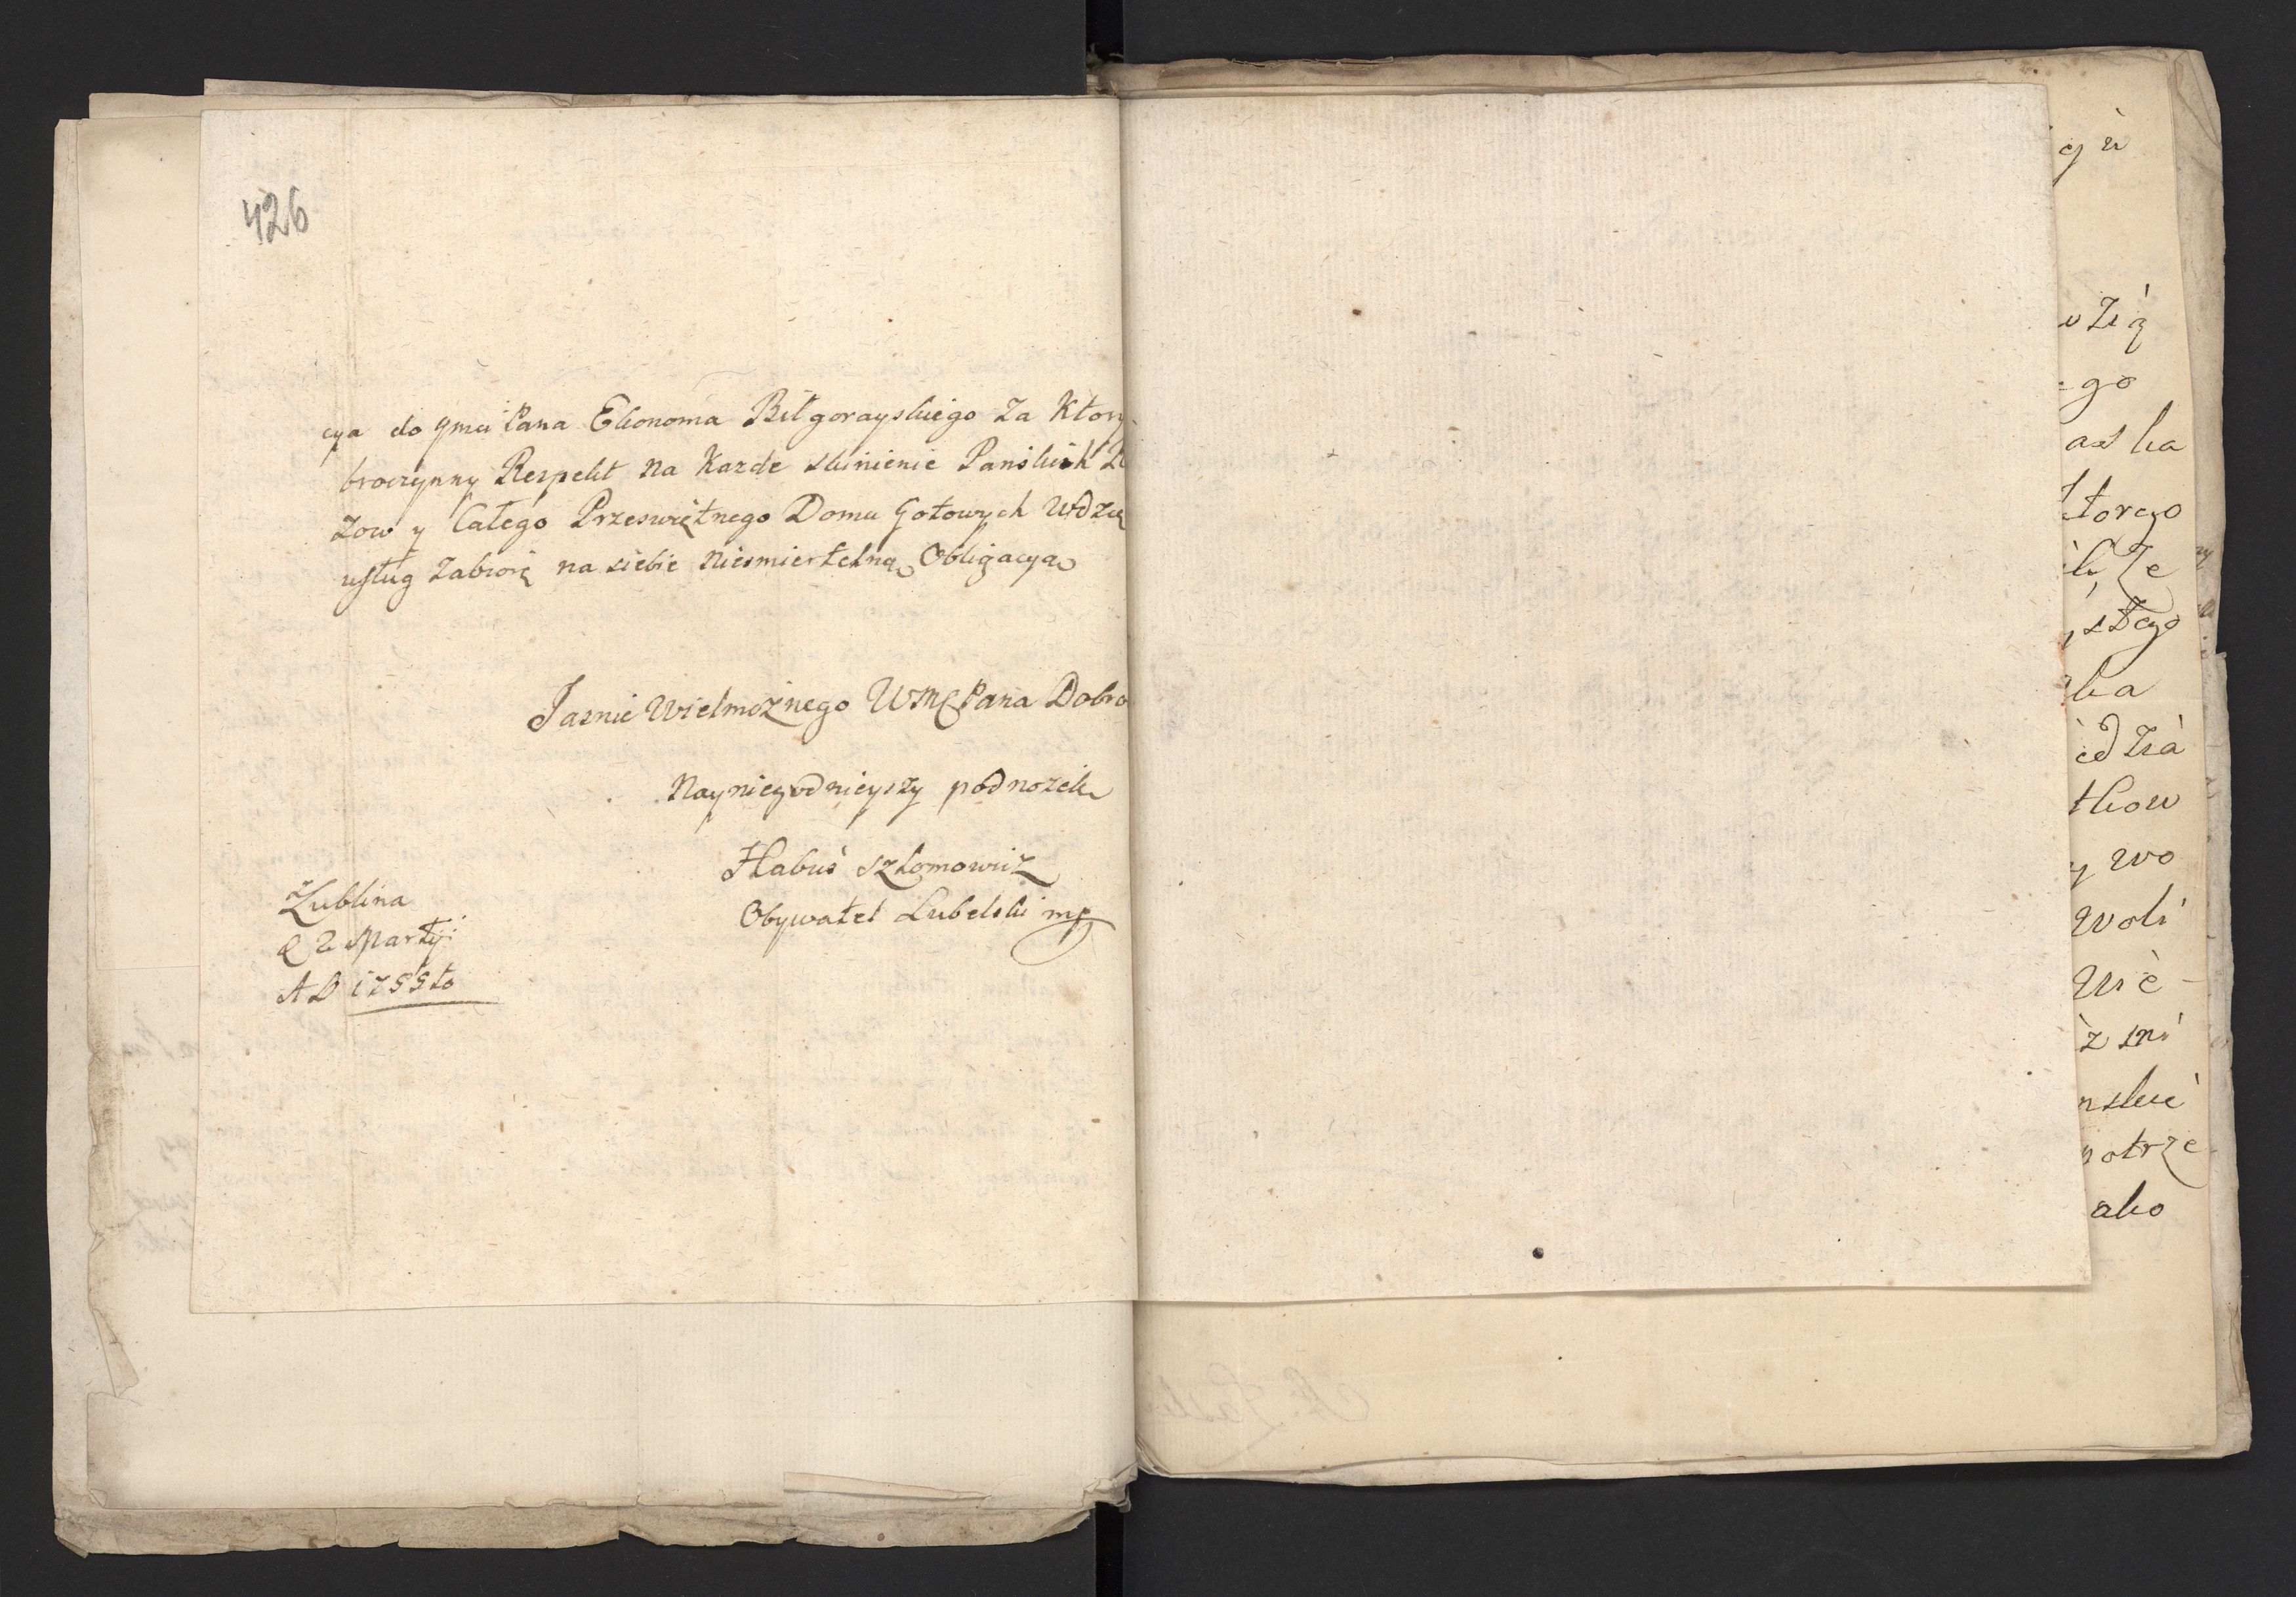 426
cya do Jmci Pana Ekonoma Biłgorayskiego Za Ktory
broczynny Respekt Na Kazde skinienie Panskich
zow y Całego Przeswiętnego Domu Gotowych Wdzię
usług Zabiorę na siebie Niesmiertelną Obligacyą
Jasnie Wielmożnego WMCPana Dobro
Nayniegodnieyszy podnozek
Habus Szlomowiz
Obywatel Lubelski mp
Zublina
2 Martij
AD 1755to
go
torego
ka
tkow
y wo
woli
nskie
otrze
ako